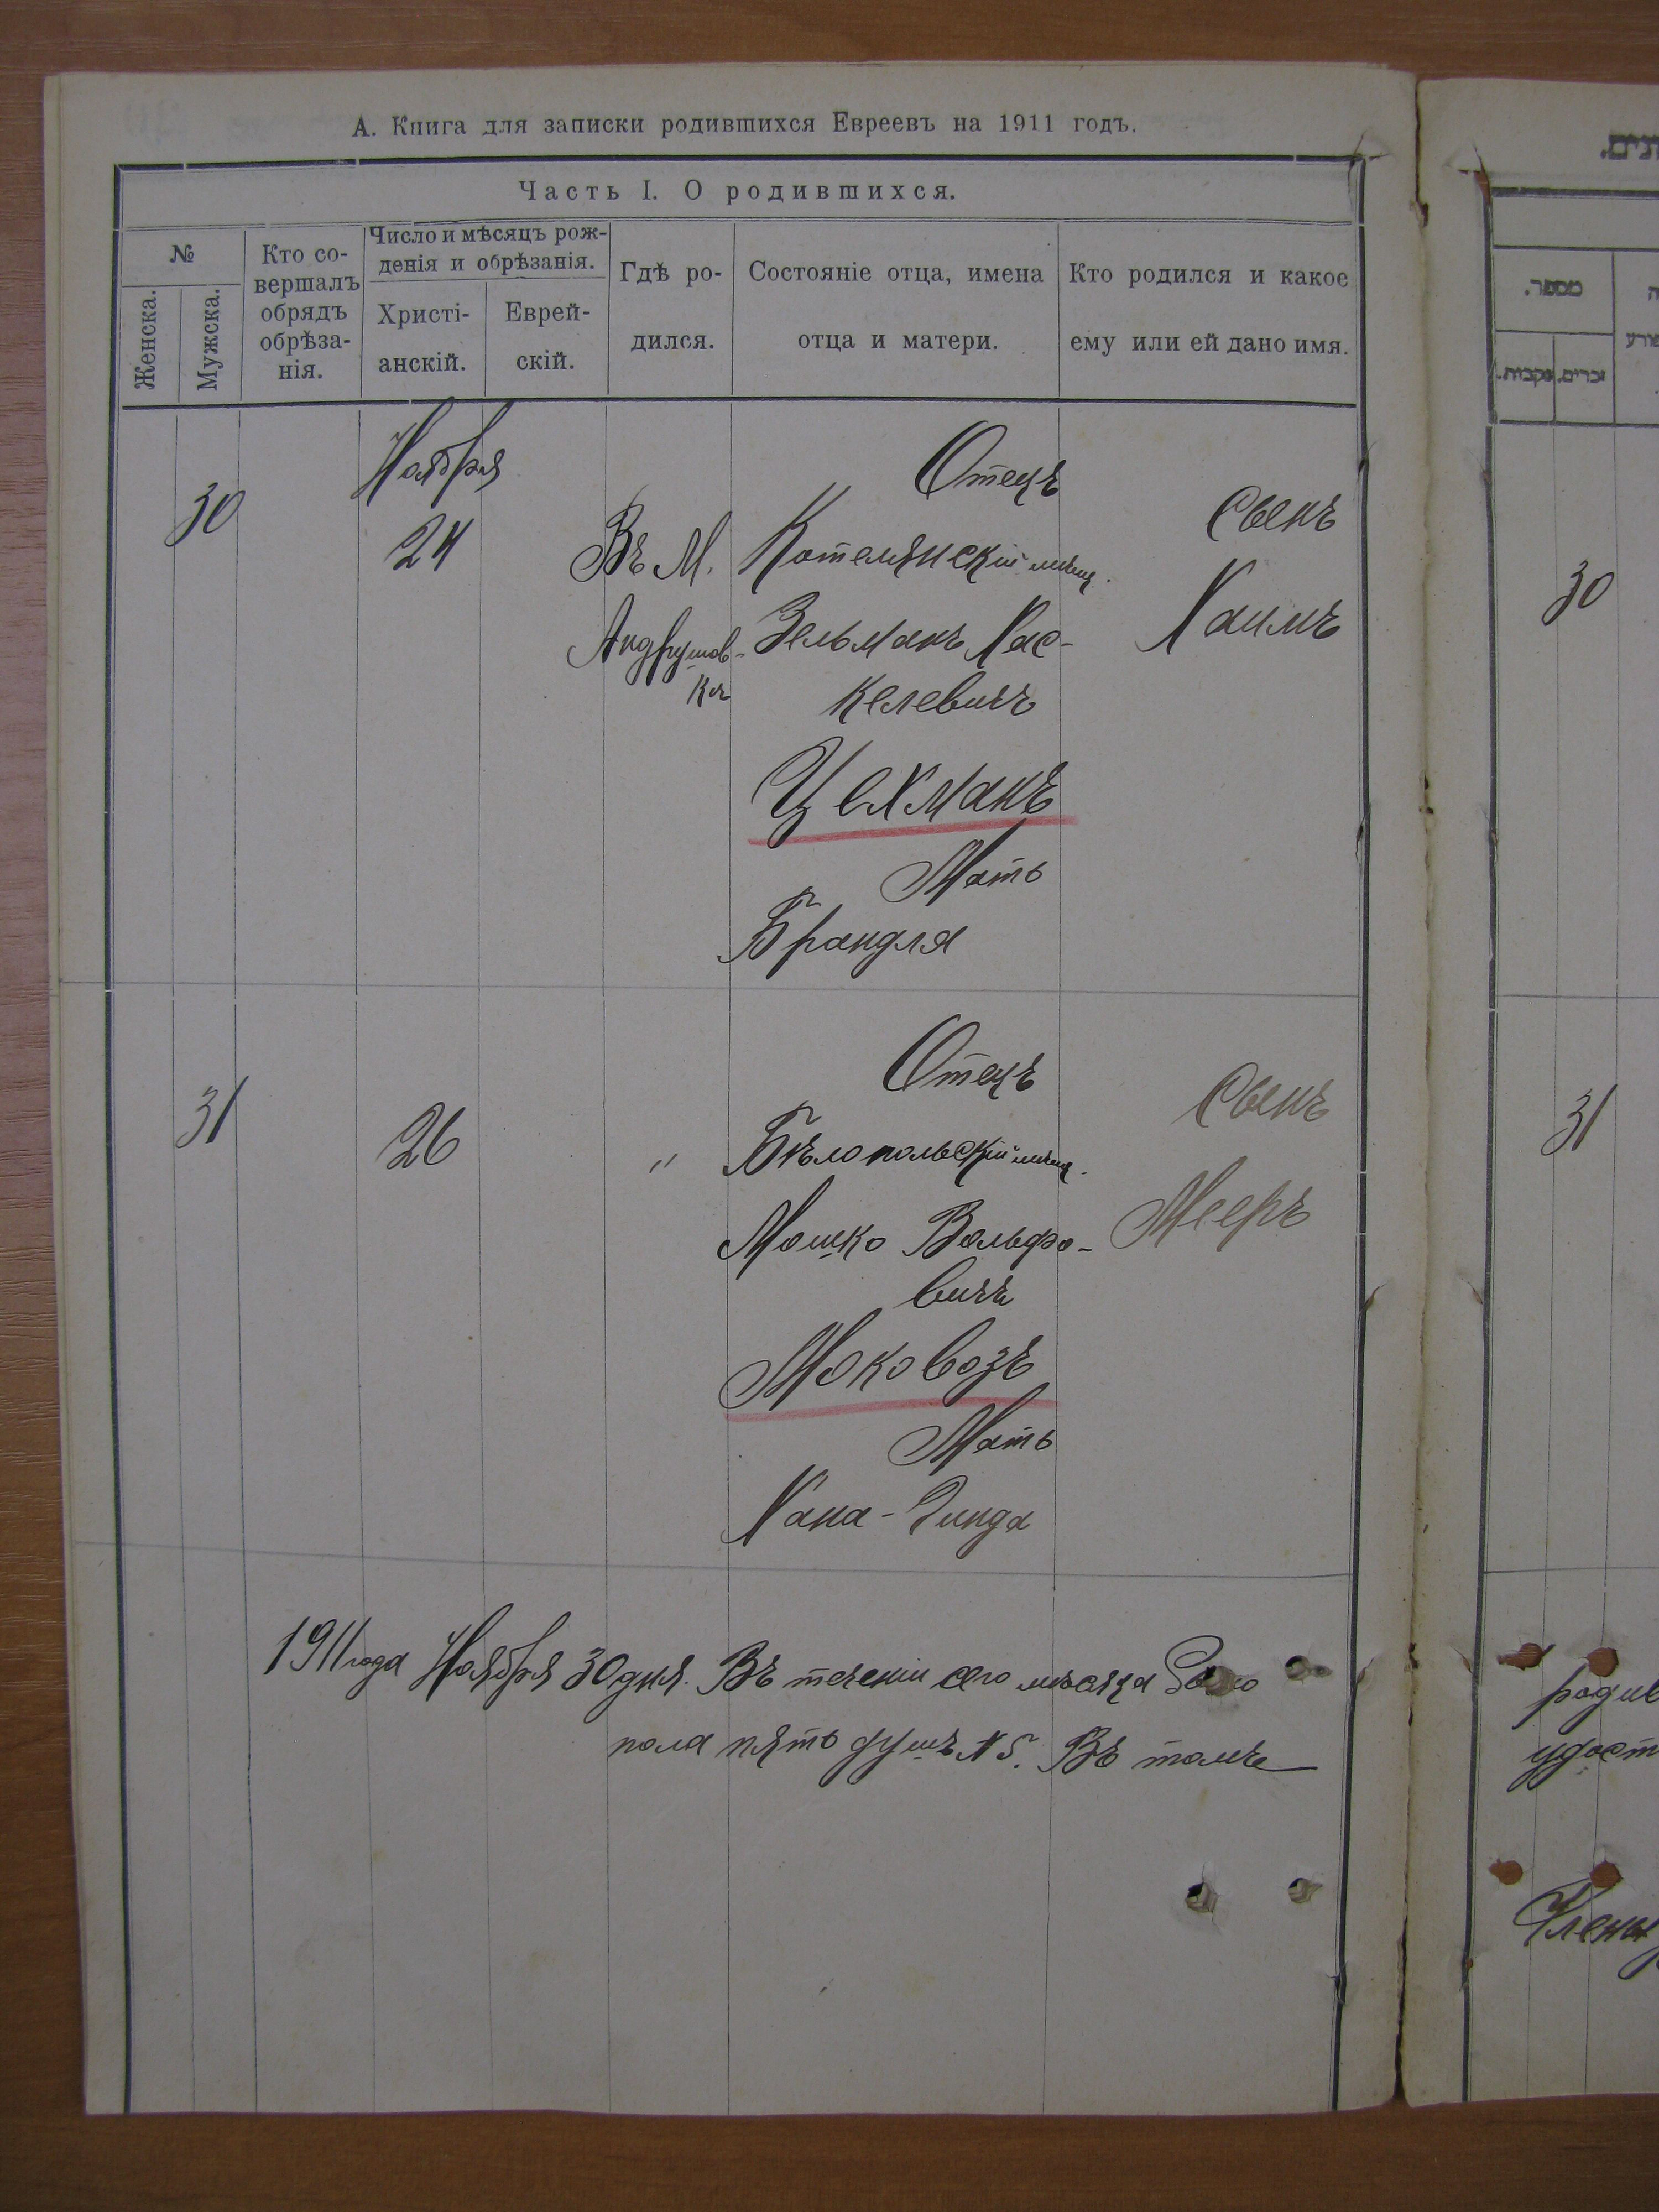 А. Книга для записки родившихся Евреевъ на 1911 годъ.
Часть I. О родившихся.
№
Женска.
Мужска.
Кто со-
вершалъ
обрядъ
обрѣза-
нія.
Число и мѣсяцъ рож-
денія и обрѣзанія.
Христі-
анскій.
Еврей-
скій.
Гдѣ ро-
дился.
Состояніе отца, имена
отца и матери.
Кто родился и какое
ему или ей дано имя.
מספר.
זכרים.
נקבות.
30
Ноября
24
Въ М.
Андрушов-
кѣ
Отецъ
Котелянскій мѣщ.
Зельманъ Хас-
келевичъ
Цехманъ
Мать
Брандля
Сынъ
Хаимъ
30
31
26
"
Отецъ
Бѣлопольскій мѣщ.
Мошко Вольфо-
вичъ
Моковозъ
Мать
Хана-Гинда
Сынъ
Мееръ
31
1911 года Ноября 30 дня. Въ теченіи сего мѣсяца
пола пять душъ № 5. Въ томъ
родив
удост
Члены